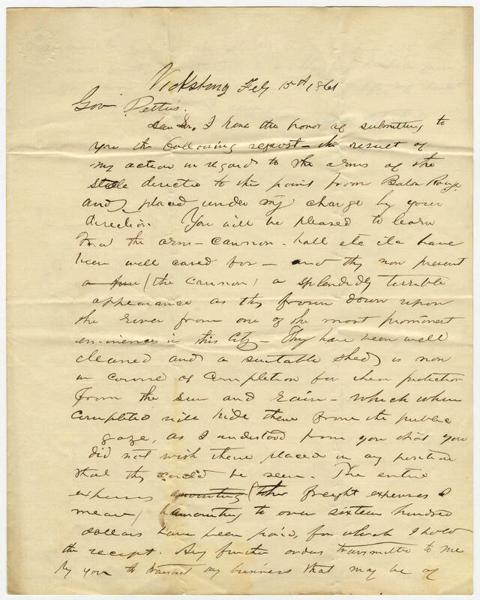 Vicksburg Feby 15th 1861
Gov Pettus.
Dear Sir, I have the honor of submitting to
you the following report - the result of
my action in regards to the arms of the
State directed to this point from Baton Rouge
and placed under my charge by your
direction. You will be pleased to learn
that the arms - cannon - ball etc etc have
been well cared for - and they now present
a fine (the cannon) a splendidly terrible
appearance as they frown down upon
the River from one of the most prominent
eminences in this City - They have been well
cleaned and a suitable shed is now
in course of completion for their protection
from the sun and rain - which when
completed will hide them from the public
gaze, as I understood from you that you
did not wish them placed in any position
that they could be seen. The entire
expenses amounting (the freight expenses I
mean) amounting to over sixteen hundred
dollars have been paid, for which I hold
the receipt. Any further orders transmitted to me
by you to transact any business that may be of